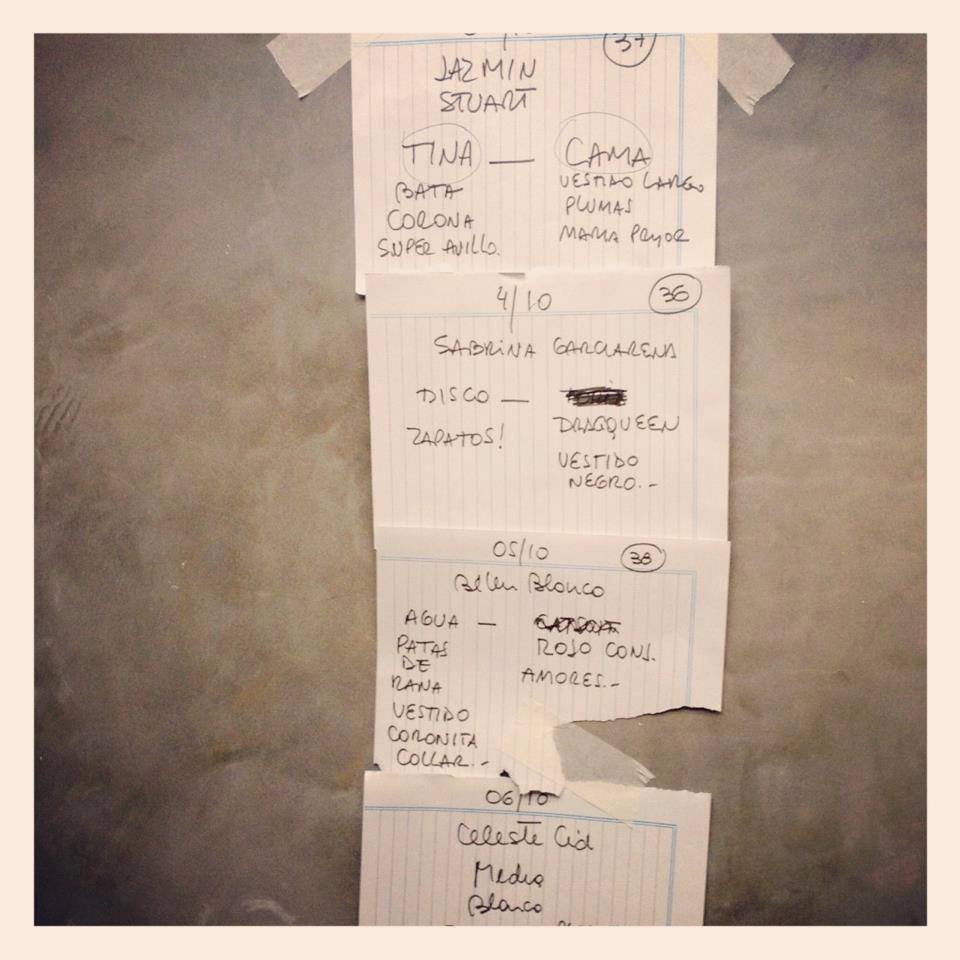 37
JAZMIN
STUART
TINA — CAMA
BATA
CORONA
SUPER ANILLO.
VESTIDO LARGO
PLUMAS
MARIA PRYOR
4/10
36
SABRINA GARCIARENA
DISCO —
ZAPATOS!
DRAGQUEEN
VESTIDO
NEGRO.-
05/10
38
Belen Blanco
AGUA —
PATAS
DE
RANA
VESTIDO
CORONITA
COLLAR.-
ROJO CONS.
AMORES.-
06/10
Celeste Cid
Media
Blanco